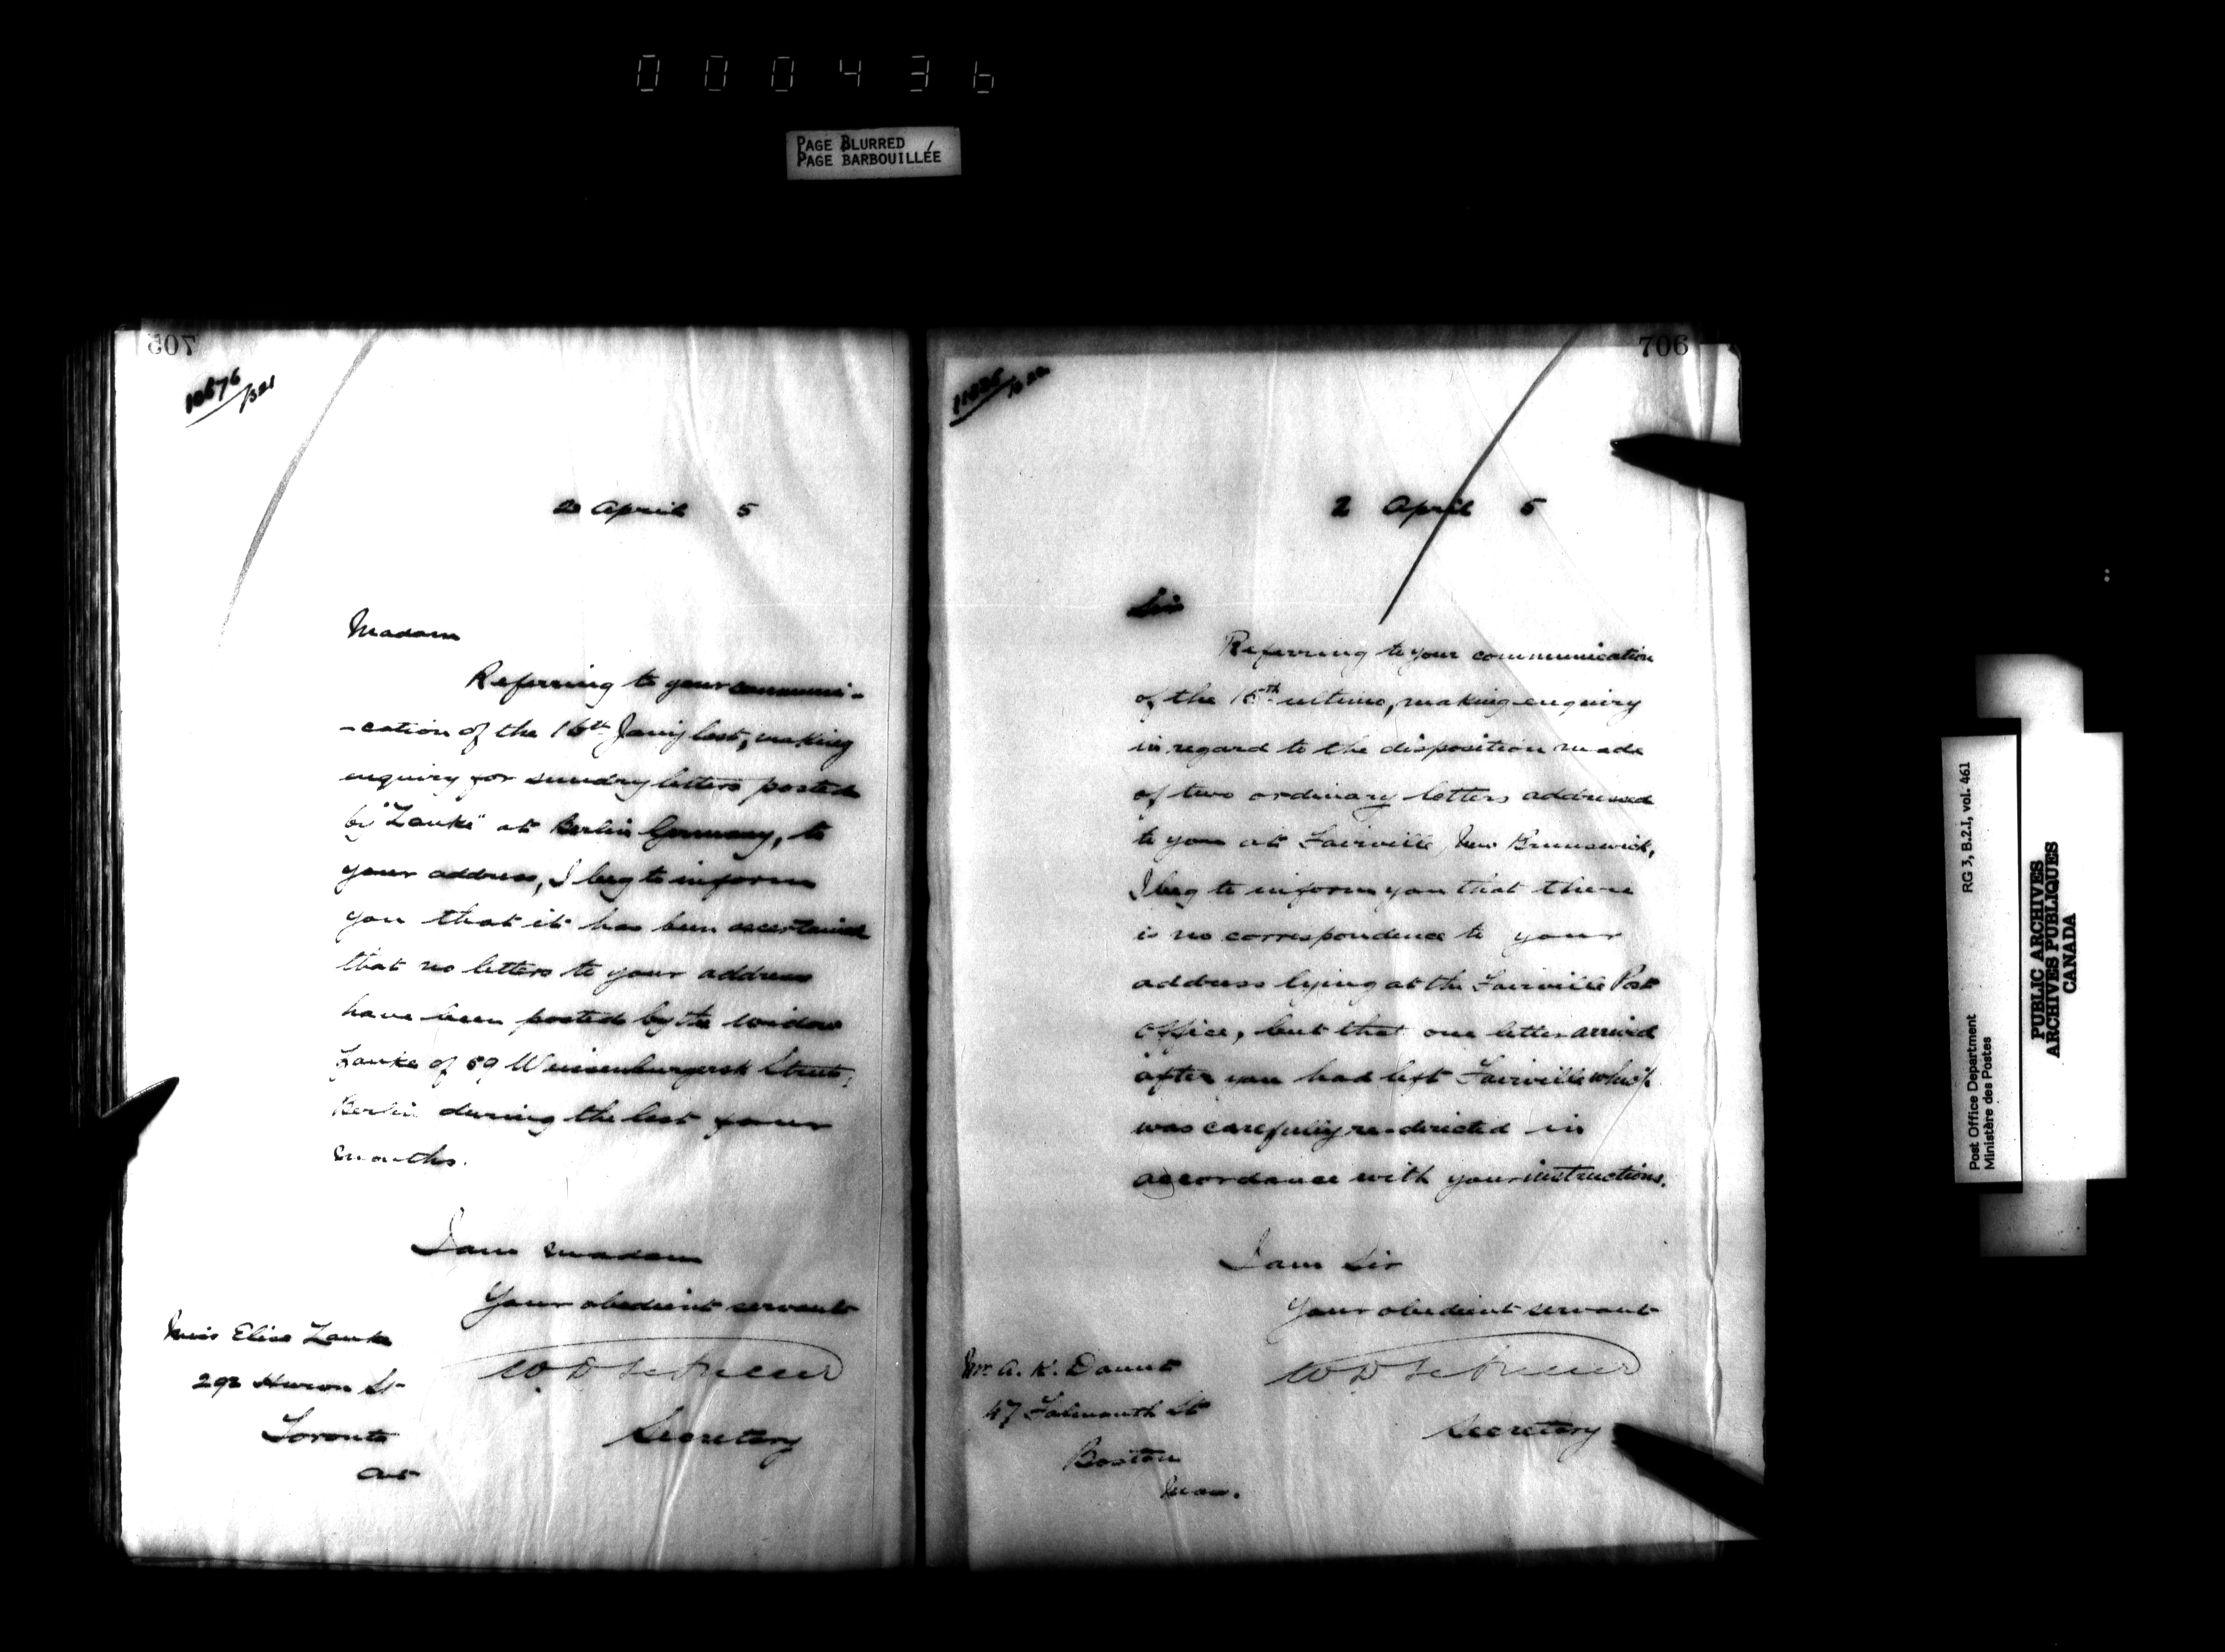 000436
PAGE BLURRED
PAGE BARBOUILLÉE
705
10676
2 April 5
Madam
Referring to your communi-
-cation of the 16th Jany last, making
enquiry for sundry letters posted
by "Zanke" at Berlin Germany, to
your address, I beg to inform
you that it has been ascertained
that no letters to your address
have been posted by the widow
Zanke of 59 Street,
Berlin during the last four
months.
I am madam
Your obedient servant
Secretary
Miss Elise Zanke
292 Huron St
Toronto
Ont
706
2 April 5
Sir
Referring to your communication
of the 15th ultimo, making enquiry
in regard to the disposition made
of two ordinary letters addressed
to you at Fairville, New Brunswick,
I beg to inform you that there
is no correspondence to your
address lying at the Fairville Post
Office, but that one letter arrived
after you had left Fairville which
was carefully re-directed in
accordance with your instructions.
I am Sir
Your obedient servant
Secretary
Mr. A. K. Daunt
47 Falmouth St
Boston
Mass.
Post Office Department RG 3, B.2.I, vol. 461
Ministère des Postes
PUBLIC ARCHIVES
ARCHIVES PUBLIQUES
CANADA